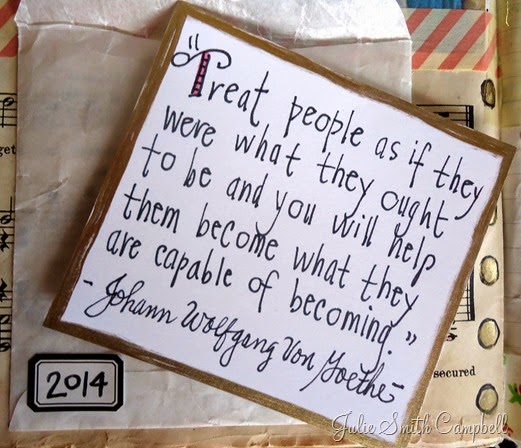 "Treat people as if they
were what they ought
to be and you will help
them become what they
are capable of becoming."
- Johann Wolfgang Von Goethe -
2014
get
secured
Julie Smith Campbell